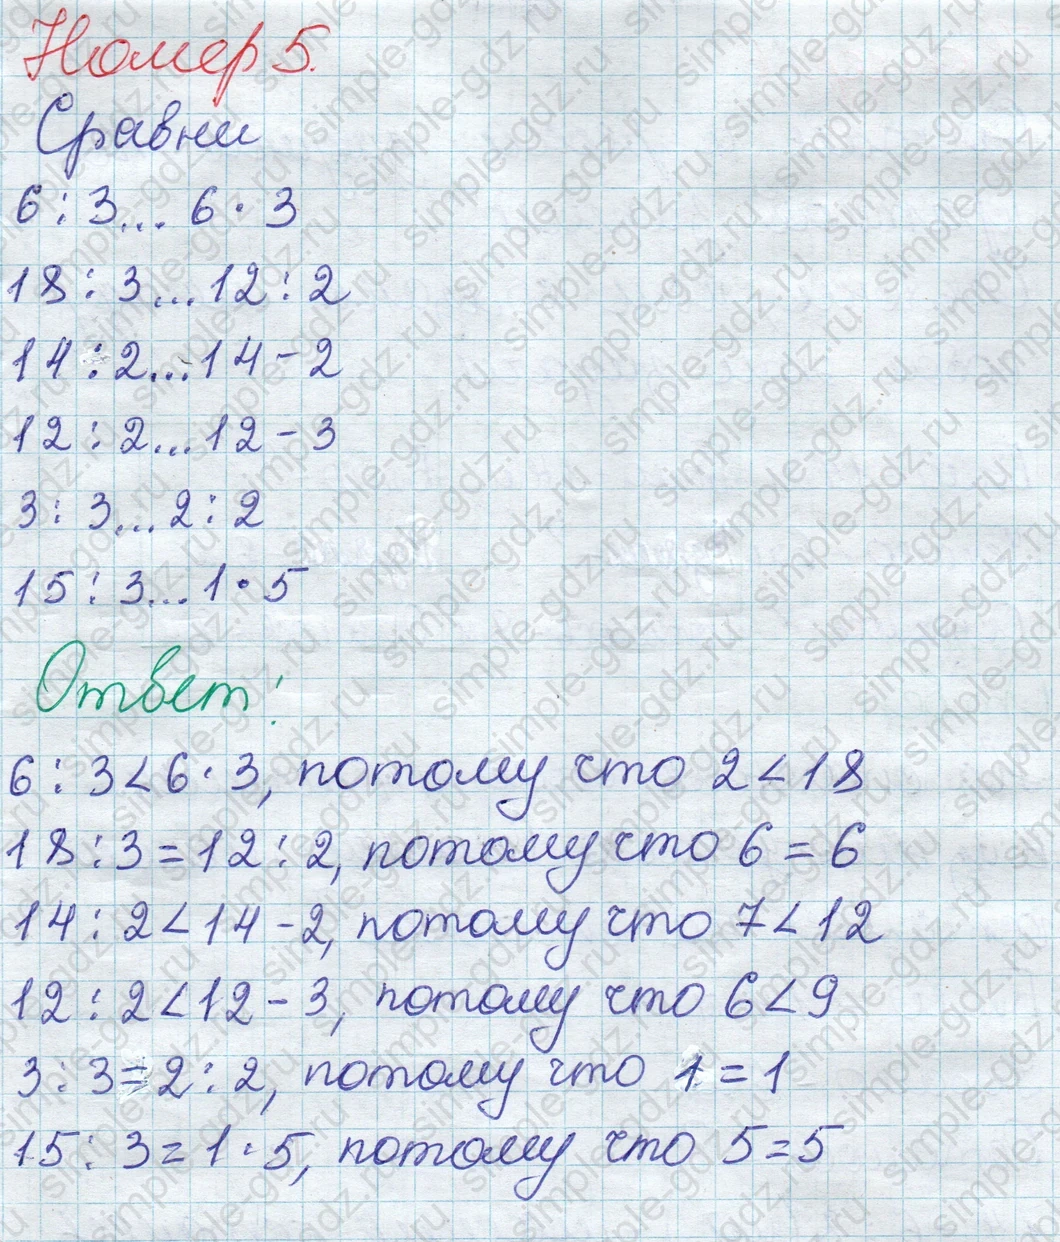 Номер 5.
Сравни
6 : 3... 6 · 3
18 : 3...12 : 2
14 : 2...14 - 2
12 : 2...12 - 3
3 : 3...2 : 2
15 : 3...1 · 5
Ответ:
6 : 3 < 6 · 3, потому что 2 < 18
18 : 3 = 12 : 2, потому что 6 = 6
14 : 2 < 14 - 2, потому что 7 < 12
12 : 2 < 12 - 3, потому что 6 < 9
3 : 3 = 2 : 2, потому что 1 = 1
15 : 3 = 1 · 5, потому что 5 = 5
simple-gdz.ru